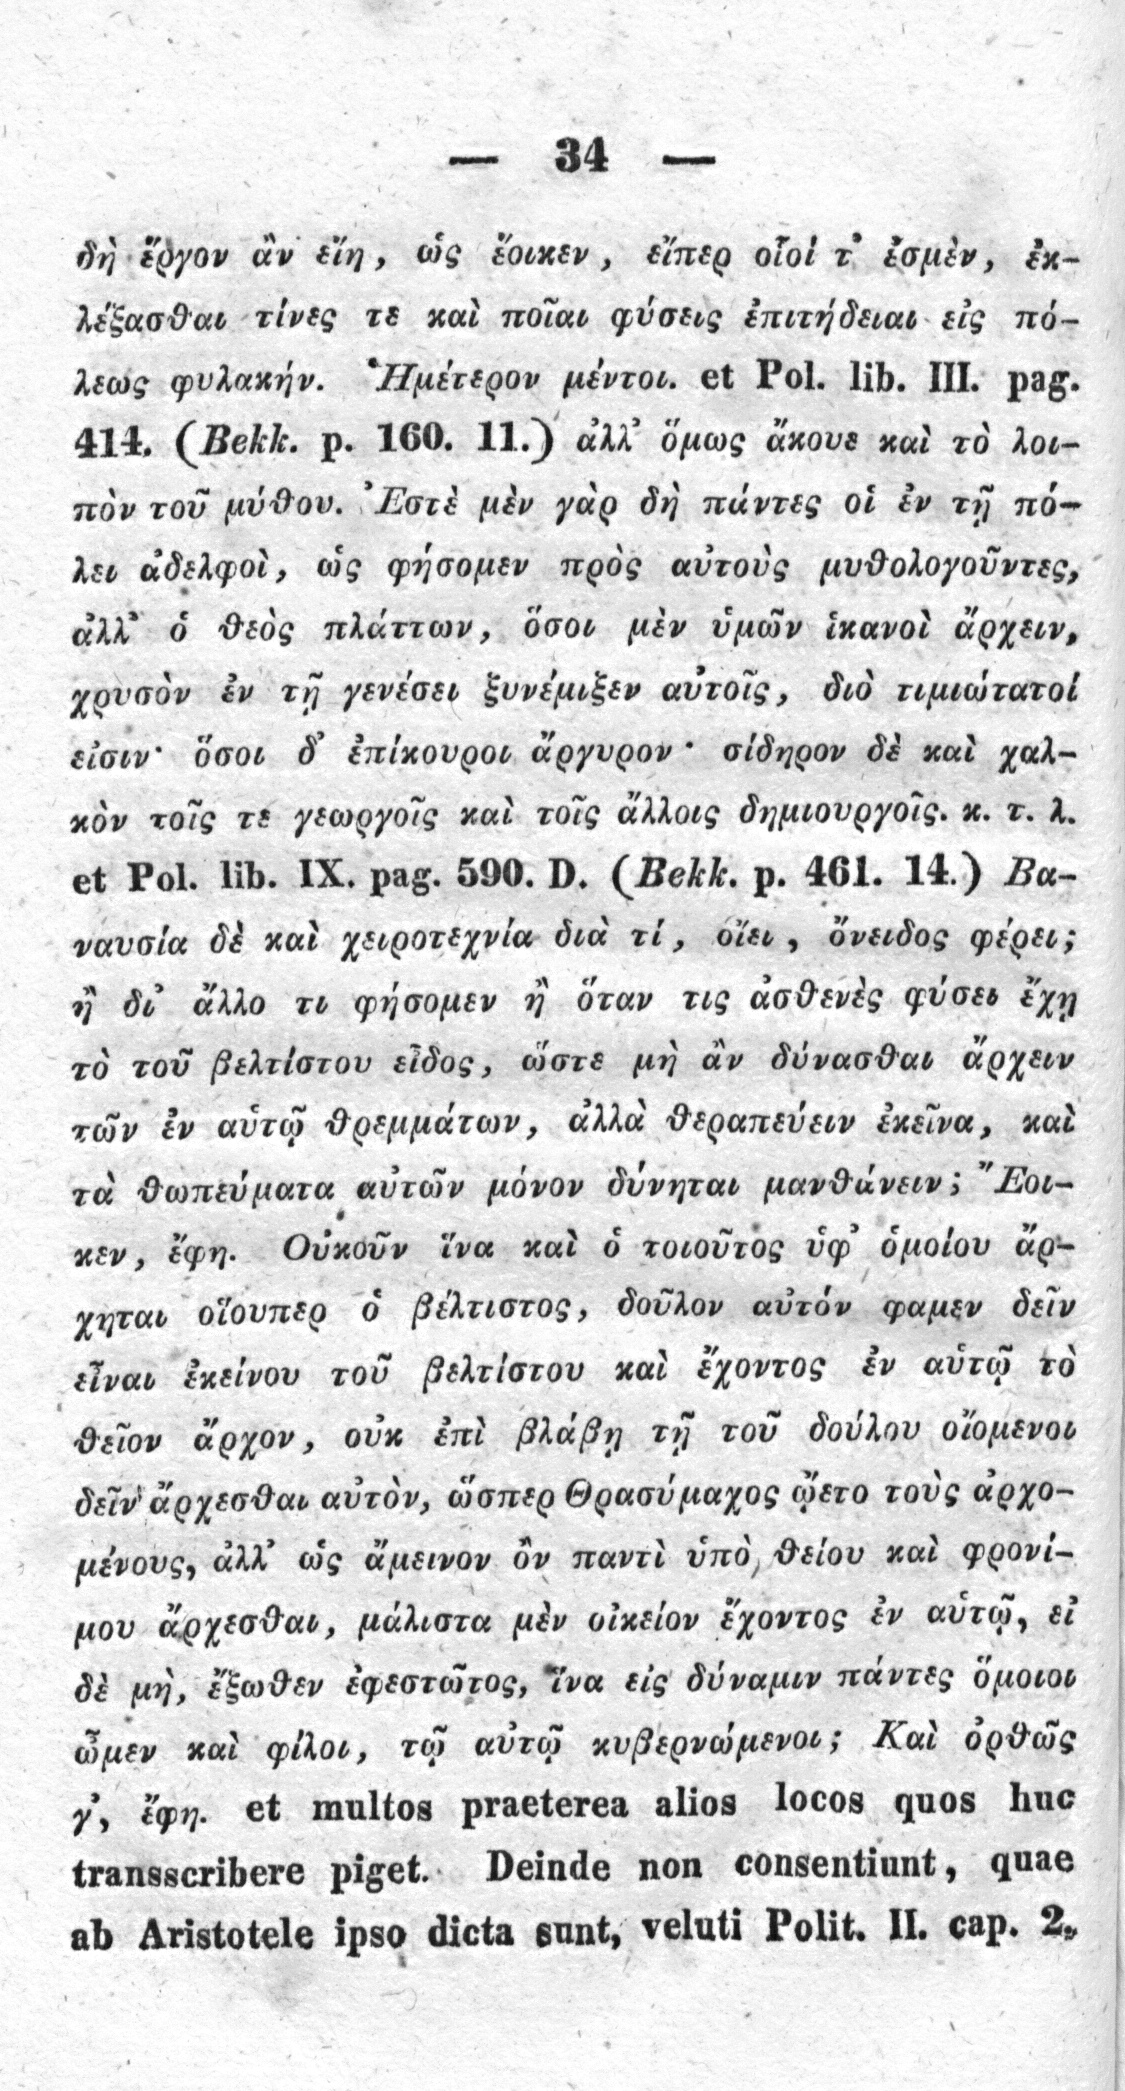 — 34 —
δὴ ἔργον ἂν εἴη, ὡς ἔοικεν, εἴπερ οἷοί τ' ἐσμὲν, ἐκ-
λέξασθαι τίνες τε καὶ ποῖαι φύσεις ἐπιτήδειαι εἰς πό-
λεως φυλακήν. Ἡμέτερον μέντοι. et Pol. lib. III. pag.
414. (Bekk. p. 160. 11.) ἀλλ' ὅμως ἄκουε καὶ τὸ λοι-
πὸν τοῦ μύθου. Ἐστὲ μὲν γὰρ δὴ πάντες οἱ ἐν τῇ πό-
λει ἀδελφοὶ, ὡς φήσομεν πρὸς αὐτοὺς μυθολογοῦντες,
ἀλλ' ὁ θεὸς πλάττων, ὅσοι μὲν ὑμῶν ἱκανοὶ ἄρχειν,
χρυσὸν ἐν τῇ γενέσει ξυνέμιξεν αὐτοῖς, διὸ τιμιώτατοί
εἰσιν· ὅσοι δ' ἐπίκουροι ἄργυρον· σίδηρον δὲ καὶ χαλ-
κὸν τοῖς τε γεωργοῖς καὶ τοῖς ἄλλοις δημιουργοῖς. κ. τ. λ.
et Pol. lib. IX. pag. 590. D. (Bekk. p. 461. 14.) Βα-
ναυσία δὲ καὶ χειροτεχνία διὰ τί, οἴει, ὄνειδος φέρει;
ἢ δι' ἄλλο τι φήσομεν ἢ ὅταν τις ἀσθενὲς φύσει ἔχῃ
τὸ τοῦ βελτίστου εἶδος, ὥστε μὴ ἂν δύνασθαι ἄρχειν
τῶν ἐν αὑτῷ θρεμμάτων, ἀλλὰ θεραπεύειν ἐκεῖνα, καὶ
τὰ θωπεύματα αὐτῶν μόνον δύνηται μανθάνειν; Ἔοι-
κεν, ἔφη. Οὐκοῦν ἵνα καὶ ὁ τοιοῦτος ὑφ' ὁμοίου ἄρ-
χηται οἵουπερ ὁ βέλτιστος, δοῦλον αὐτόν φαμεν δεῖν
εἶναι ἐκείνου τοῦ βελτίστου καὶ ἔχοντος ἐν αὑτῷ τὸ
θεῖον ἄρχον, οὐκ ἐπὶ βλάβῃ τῇ τοῦ δούλου οἰόμενοι
δεῖν ἄρχεσθαι αὐτὸν, ὥσπερ Θρασύμαχος ᾤετο τοὺς ἀρχο-
μένους, ἀλλ' ὡς ἄμεινον ὂν παντὶ ὑπὸ θείου καὶ φρονί-
μου ἄρχεσθαι, μάλιστα μὲν οἰκεῖον ἔχοντος ἐν αὑτῷ, εἰ
δὲ μὴ, ἔξωθεν ἐφεστῶτος, ἵνα εἰς δύναμιν πάντες ὅμοιοι
ὦμεν καὶ φίλοι, τῷ αὐτῷ κυβερνώμενοι; Καὶ ὀρθῶς
γ', ἔφη. et multos praeterea alios locos quos huc
transscribere piget. Deinde non consentiunt, quae
ab Aristotele ipso dicta sunt, veluti Polit. II. cap. 2.